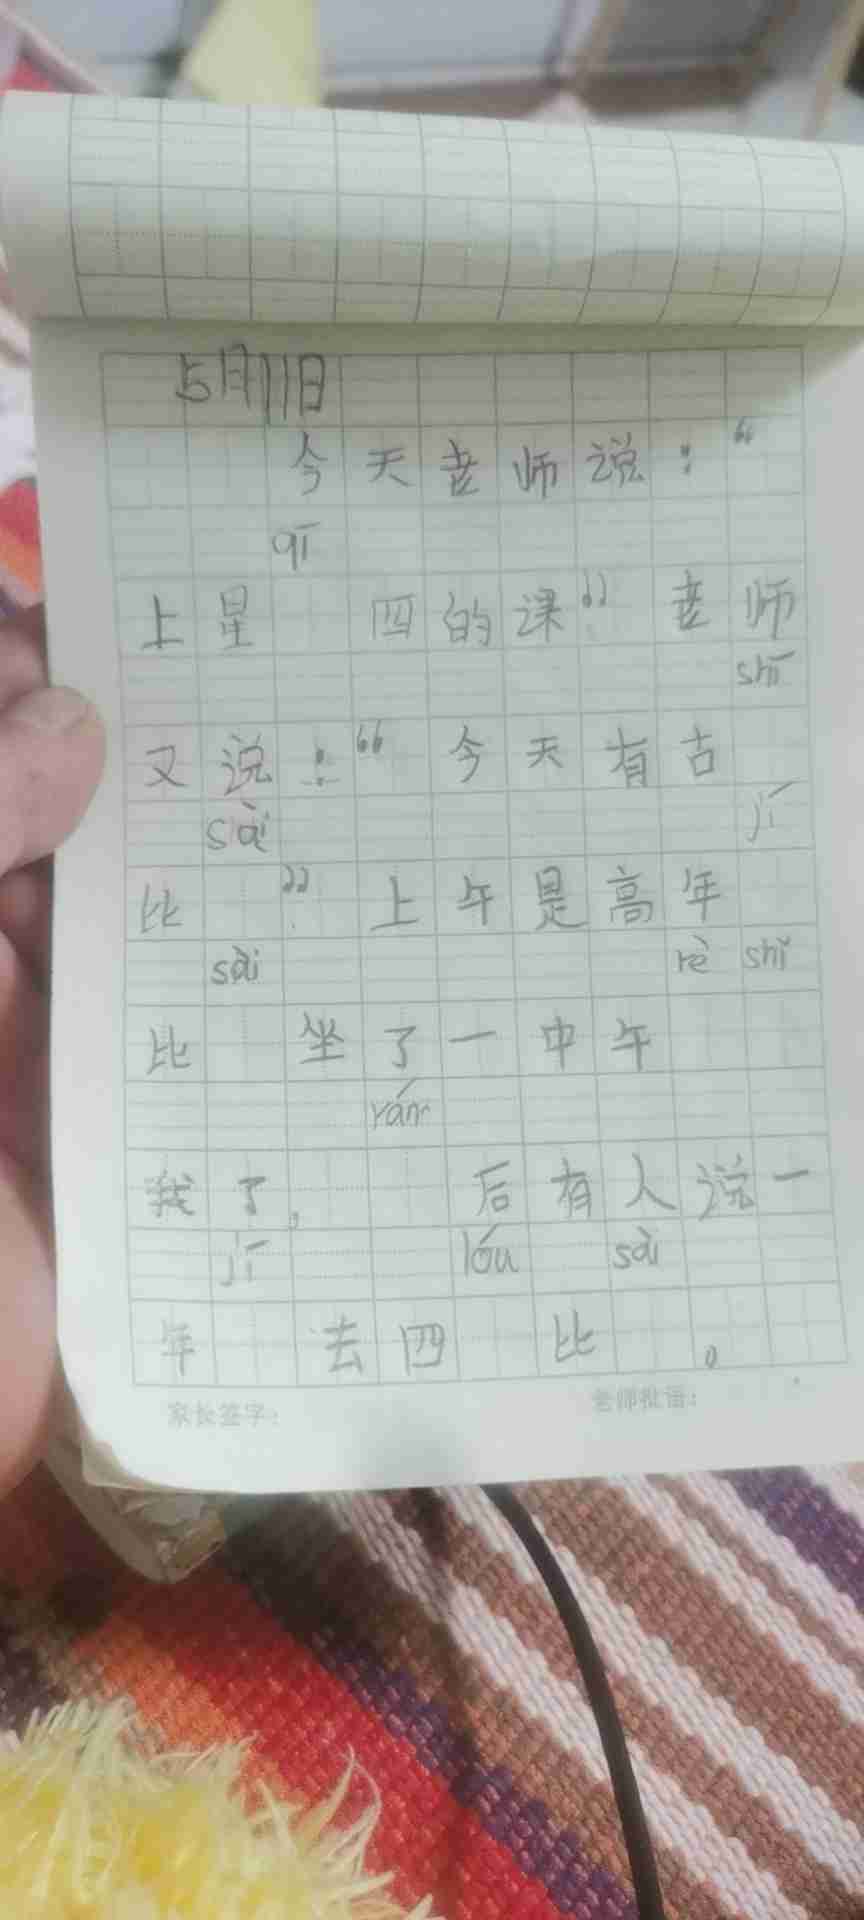 5月11日
今天老师说：“
qī
上星 四的课”老师
shī
又说：“今天有古
sài jī
比 ”上午是高年
sài rè shǐ
比 坐了一中午
rán
我了， 后有人说一
jī lóu sài
年 去四 比 。
家长签字： 老师批语：